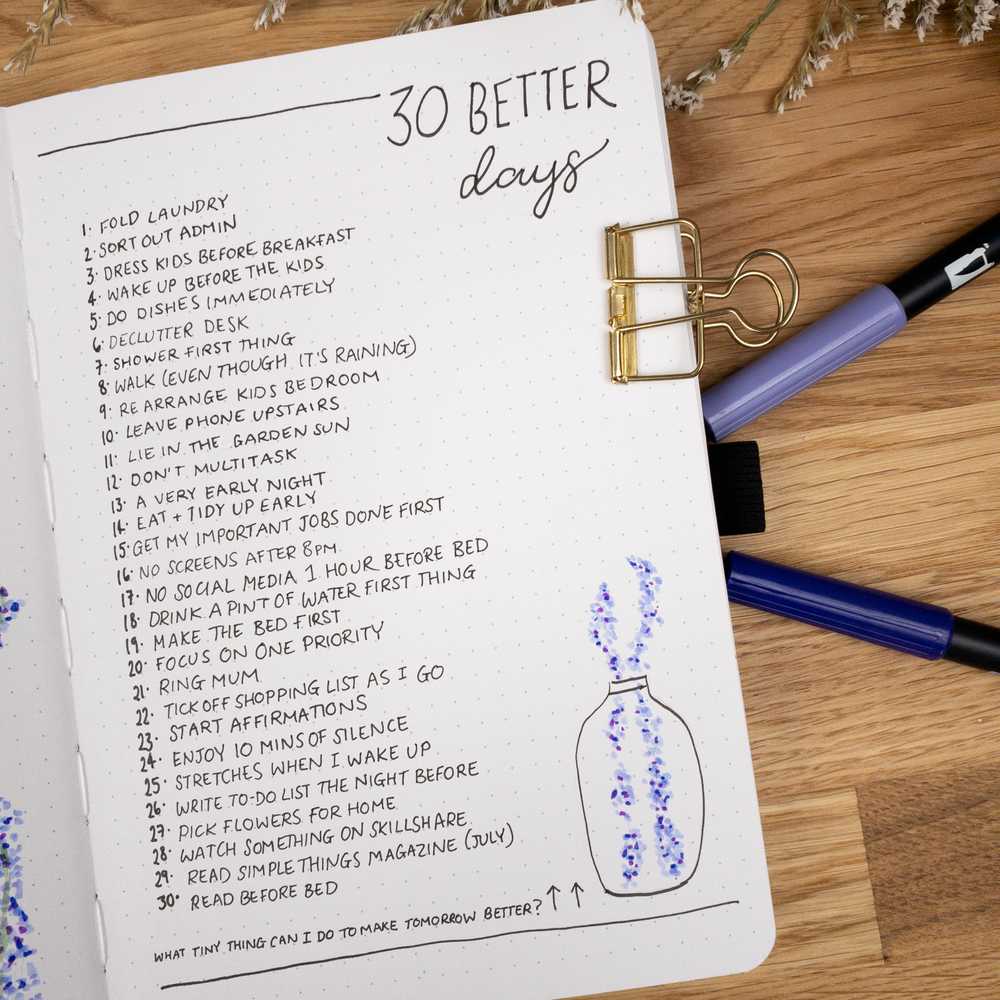 30 BETTER
days
1. FOLD LAUNDRY
2. SORT OUT ADMIN
3. DRESS KIDS BEFORE BREAKFAST
4. WAKE UP BEFORE THE KIDS
5. DO DISHES IMMEDIATELY
6. DECLUTTER DESK
7. SHOWER FIRST THING
8. WALK (EVEN THOUGH IT'S RAINING)
9. REARRANGE KIDS BEDROOM
10. LEAVE PHONE UPSTAIRS
11. LIE IN THE GARDEN SUN
12. DON'T MULTITASK
13. A VERY EARLY NIGHT
14. EAT + TIDY UP EARLY
15. GET MY IMPORTANT JOBS DONE FIRST
16. NO SCREENS AFTER 8PM
17. NO SOCIAL MEDIA 1 HOUR BEFORE BED
18. DRINK A PINT OF WATER FIRST THING
19. MAKE THE BED FIRST
20. FOCUS ON ONE PRIORITY
21. RING MUM
22. TICK OFF SHOPPING LIST AS I GO
23. START AFFIRMATIONS
24. ENJOY 10 MINS OF SILENCE
25. STRETCHES WHEN I WAKE UP
26. WRITE TO-DO LIST THE NIGHT BEFORE
27. PICK FLOWERS FOR HOME
28. WATCH SOMETHING ON SKILLSHARE
29. READ SIMPLE THINGS MAGAZINE (JULY)
30. READ BEFORE BED
WHAT TINY THING CAN I DO TO MAKE TOMORROW BETTER? ↑ ↑